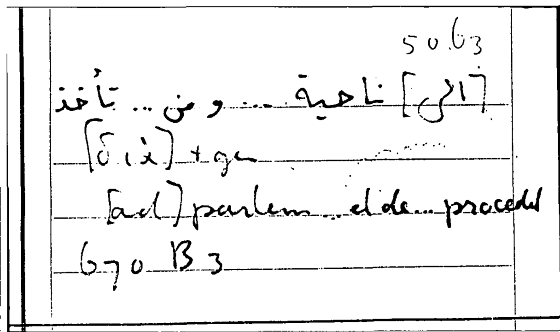 50.63
[الى] ناحية ... ومن ... تأخذ
[διά] + gen
[ad] partem ... et de ... procedet
670 B 3